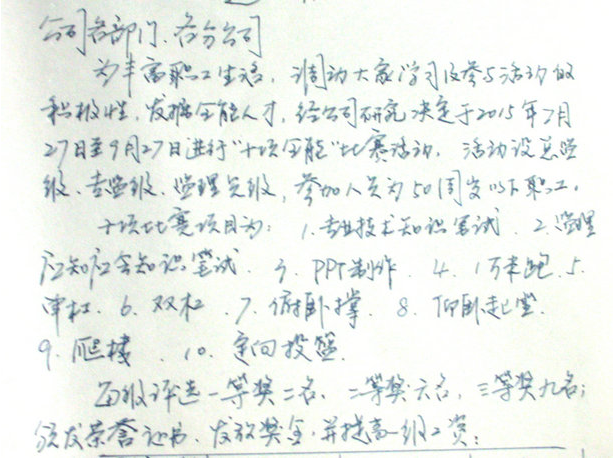 公司各部门、各分公司
为丰富职工生活，调动大家学习及参与活动的
积极性，发掘全能人才，经公司研究决定于2015年7月
27日至9月27日进行"十项全能"比赛活动，活动设总监
级、专监级、监理员级，参加人员为50周岁以下职工。
十项比赛项目为：1.专业技术知识笔试．2.监理
应知应会知识笔试．3．PPT制作．4．1万米跑．5．
单杠．6．双杠．7．俯卧撑．8．仰卧起坐．
9．爬楼．10．定向投篮．
每级评选一等奖二名，二等奖六名，三等奖九名；
颁发荣誉证书、发放奖金，并提高一级工资；